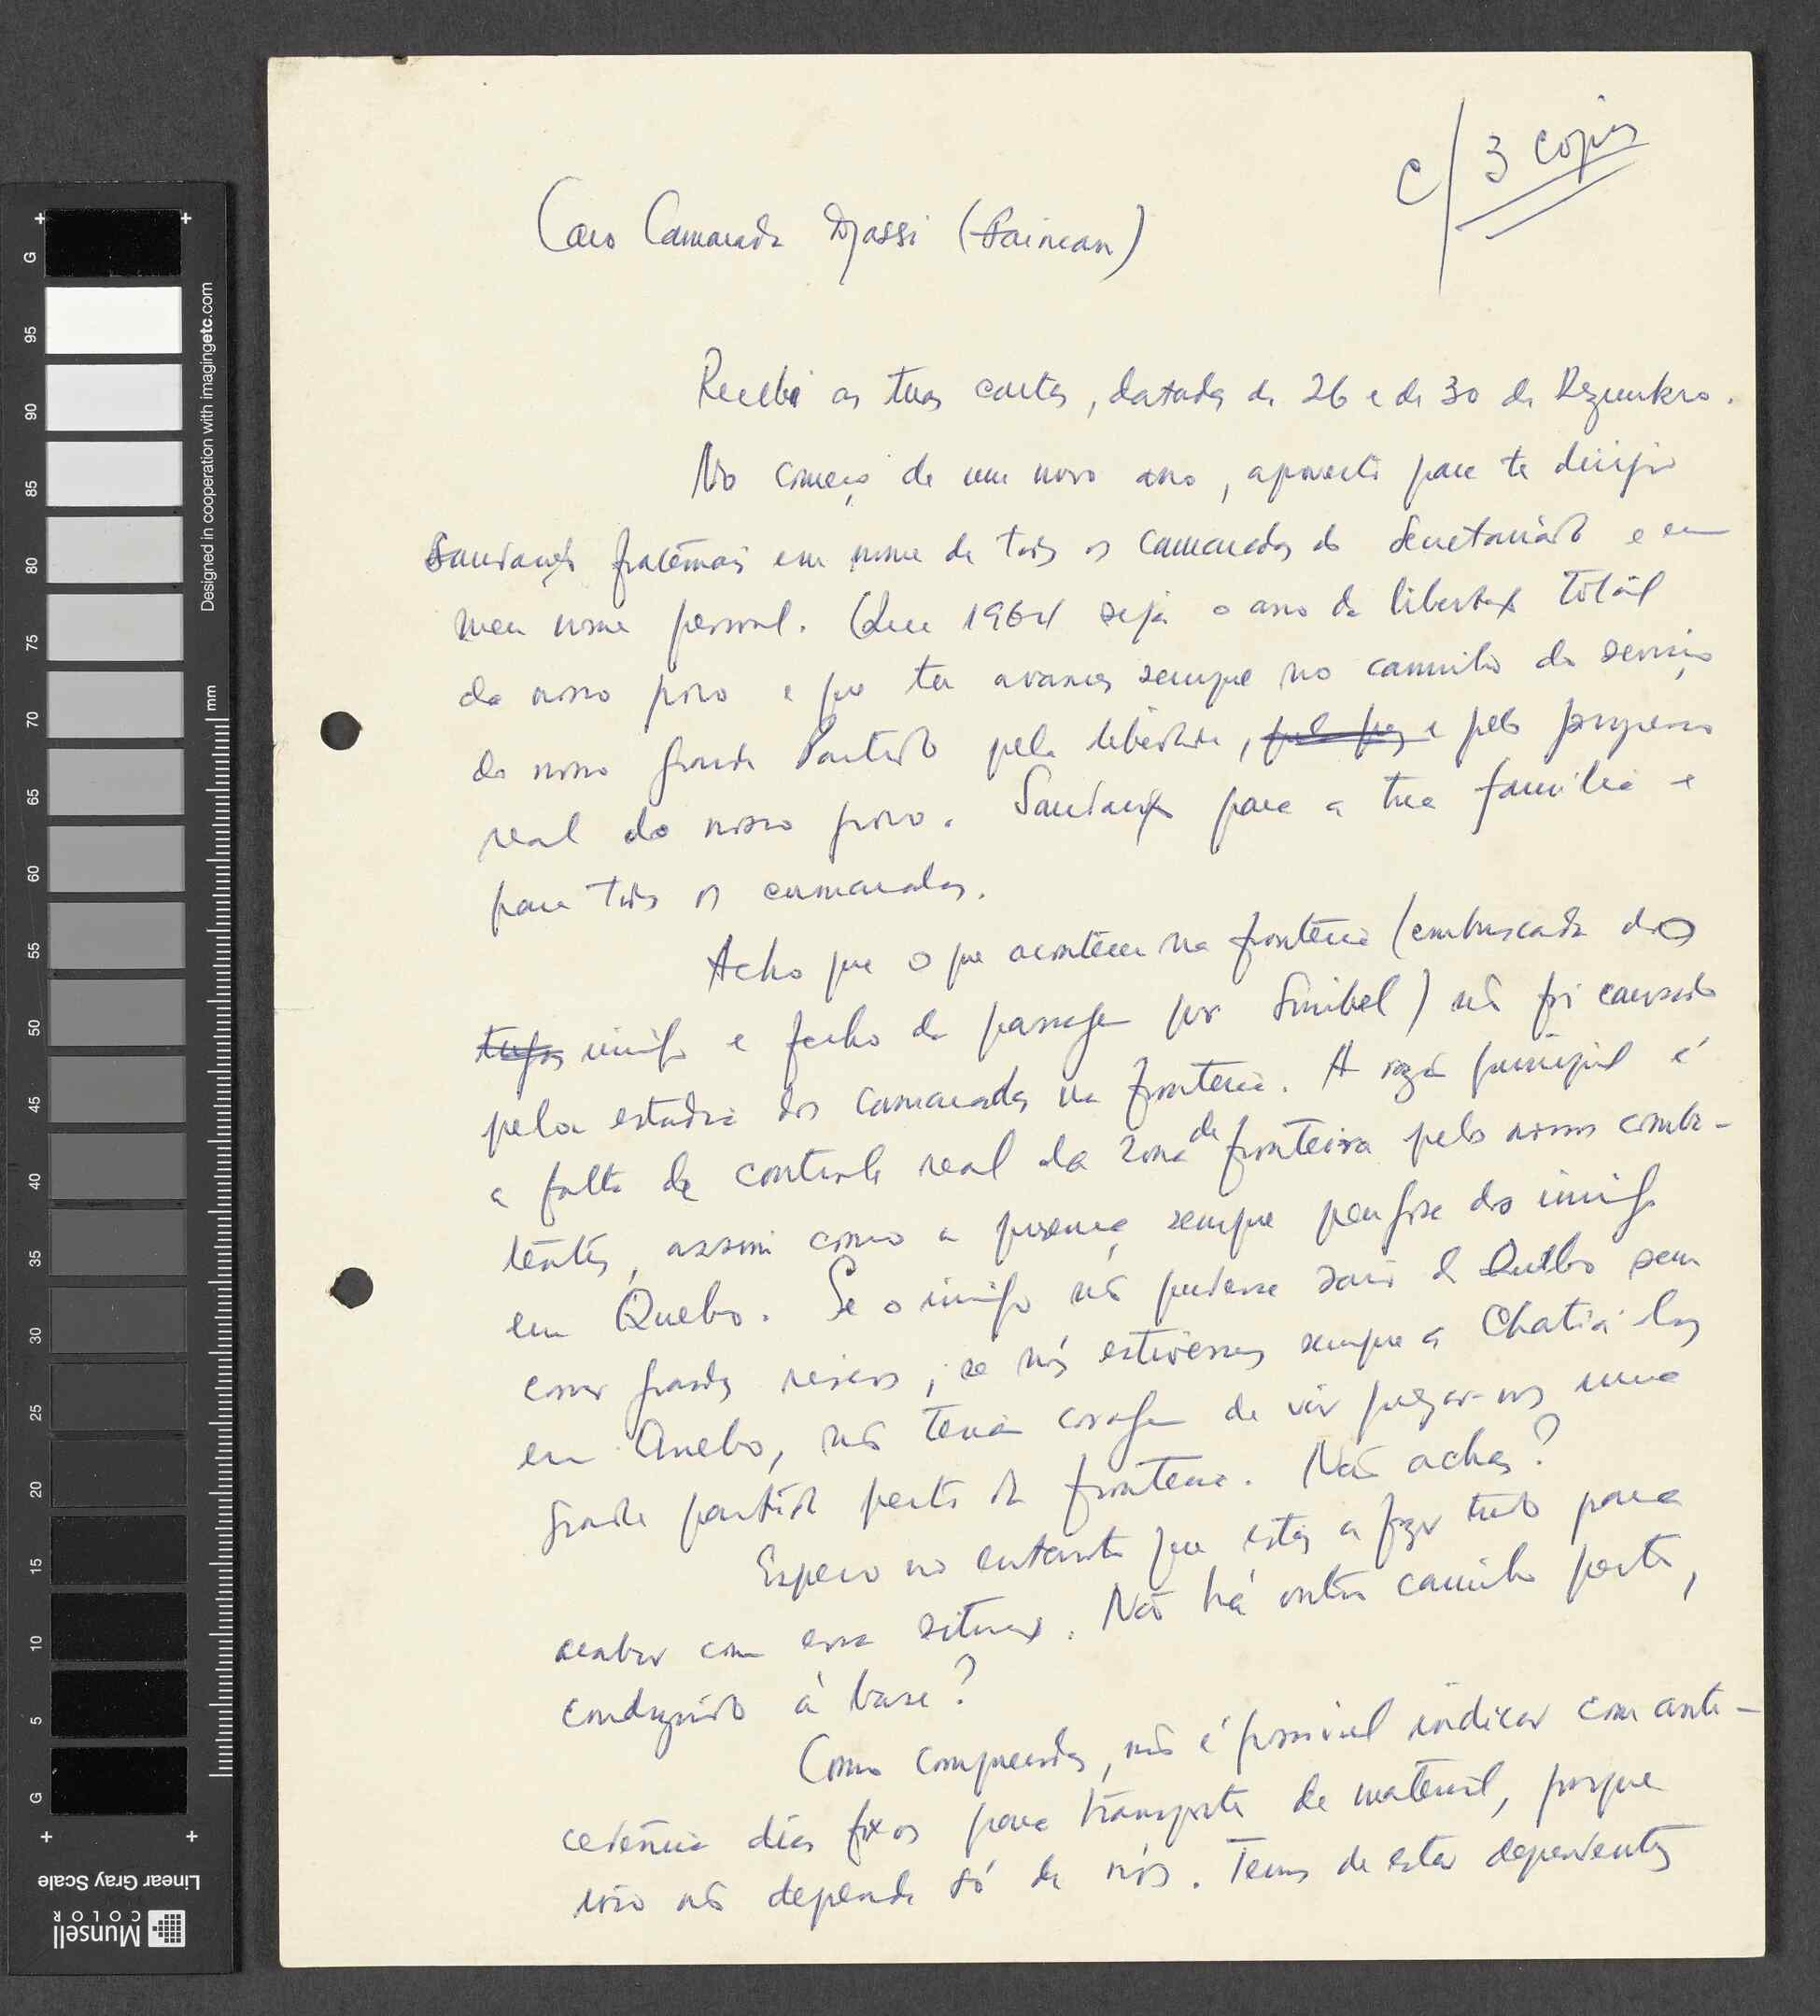 c/ 3 copias
Caro Camarada Djassi (Faincam)
Recebi as tuas cartas, datadas de 26 e de 30 de Dezembro.
No começo de um novo ano, aproveito para te dirigir
saudações fraternais em nome de todos os camaradas do Secretariado e em
meu nome pessoal. Que 1964 seja o ano da libertação total
do nosso povo e que tu avances sempre no caminho do serviço
do nosso grande Partido pela liberdade, pela paz e pelo progresso
real do nosso povo. Saudações para a tua família e
para todos os camaradas.
Acho que o que aconteceu na fronteira (embuscada do
tugas inimigo e fecho da passagem por Simibel) não foi causado
pela estadia dos camaradas na fronteira. A razão principal é
a falta de controle real da zona de fronteira pelos nossos comba-
tentes, assim como a presença sempre perigosa do inimigo
em Quebo. Se o inimigo não pudesse sair de Quebo sem
correr grandes riscos, se nós estivessemos sempre a chatiá-los
em Quebo, não teria coragem de vir pregar-nos uma
grande partida perto da fronteira. Não achas?
Espero no entanto que estás a fazer tudo para
acabar com essa situação. Não há outro caminho perto,
conduzindo à base?
Como compreendes, não é possível indicar com ante-
cedência dias fixos para transporte de material, porque
isso não depende só de nós. Temos de estar dependentes
Designed in cooperation with imagingetc.com
mm
G 95 90 85 80 75 70 65 60 55 50 45 40 35 30 25 20 15 10 5 G
Linear Gray Scale
Munsell
COLOR